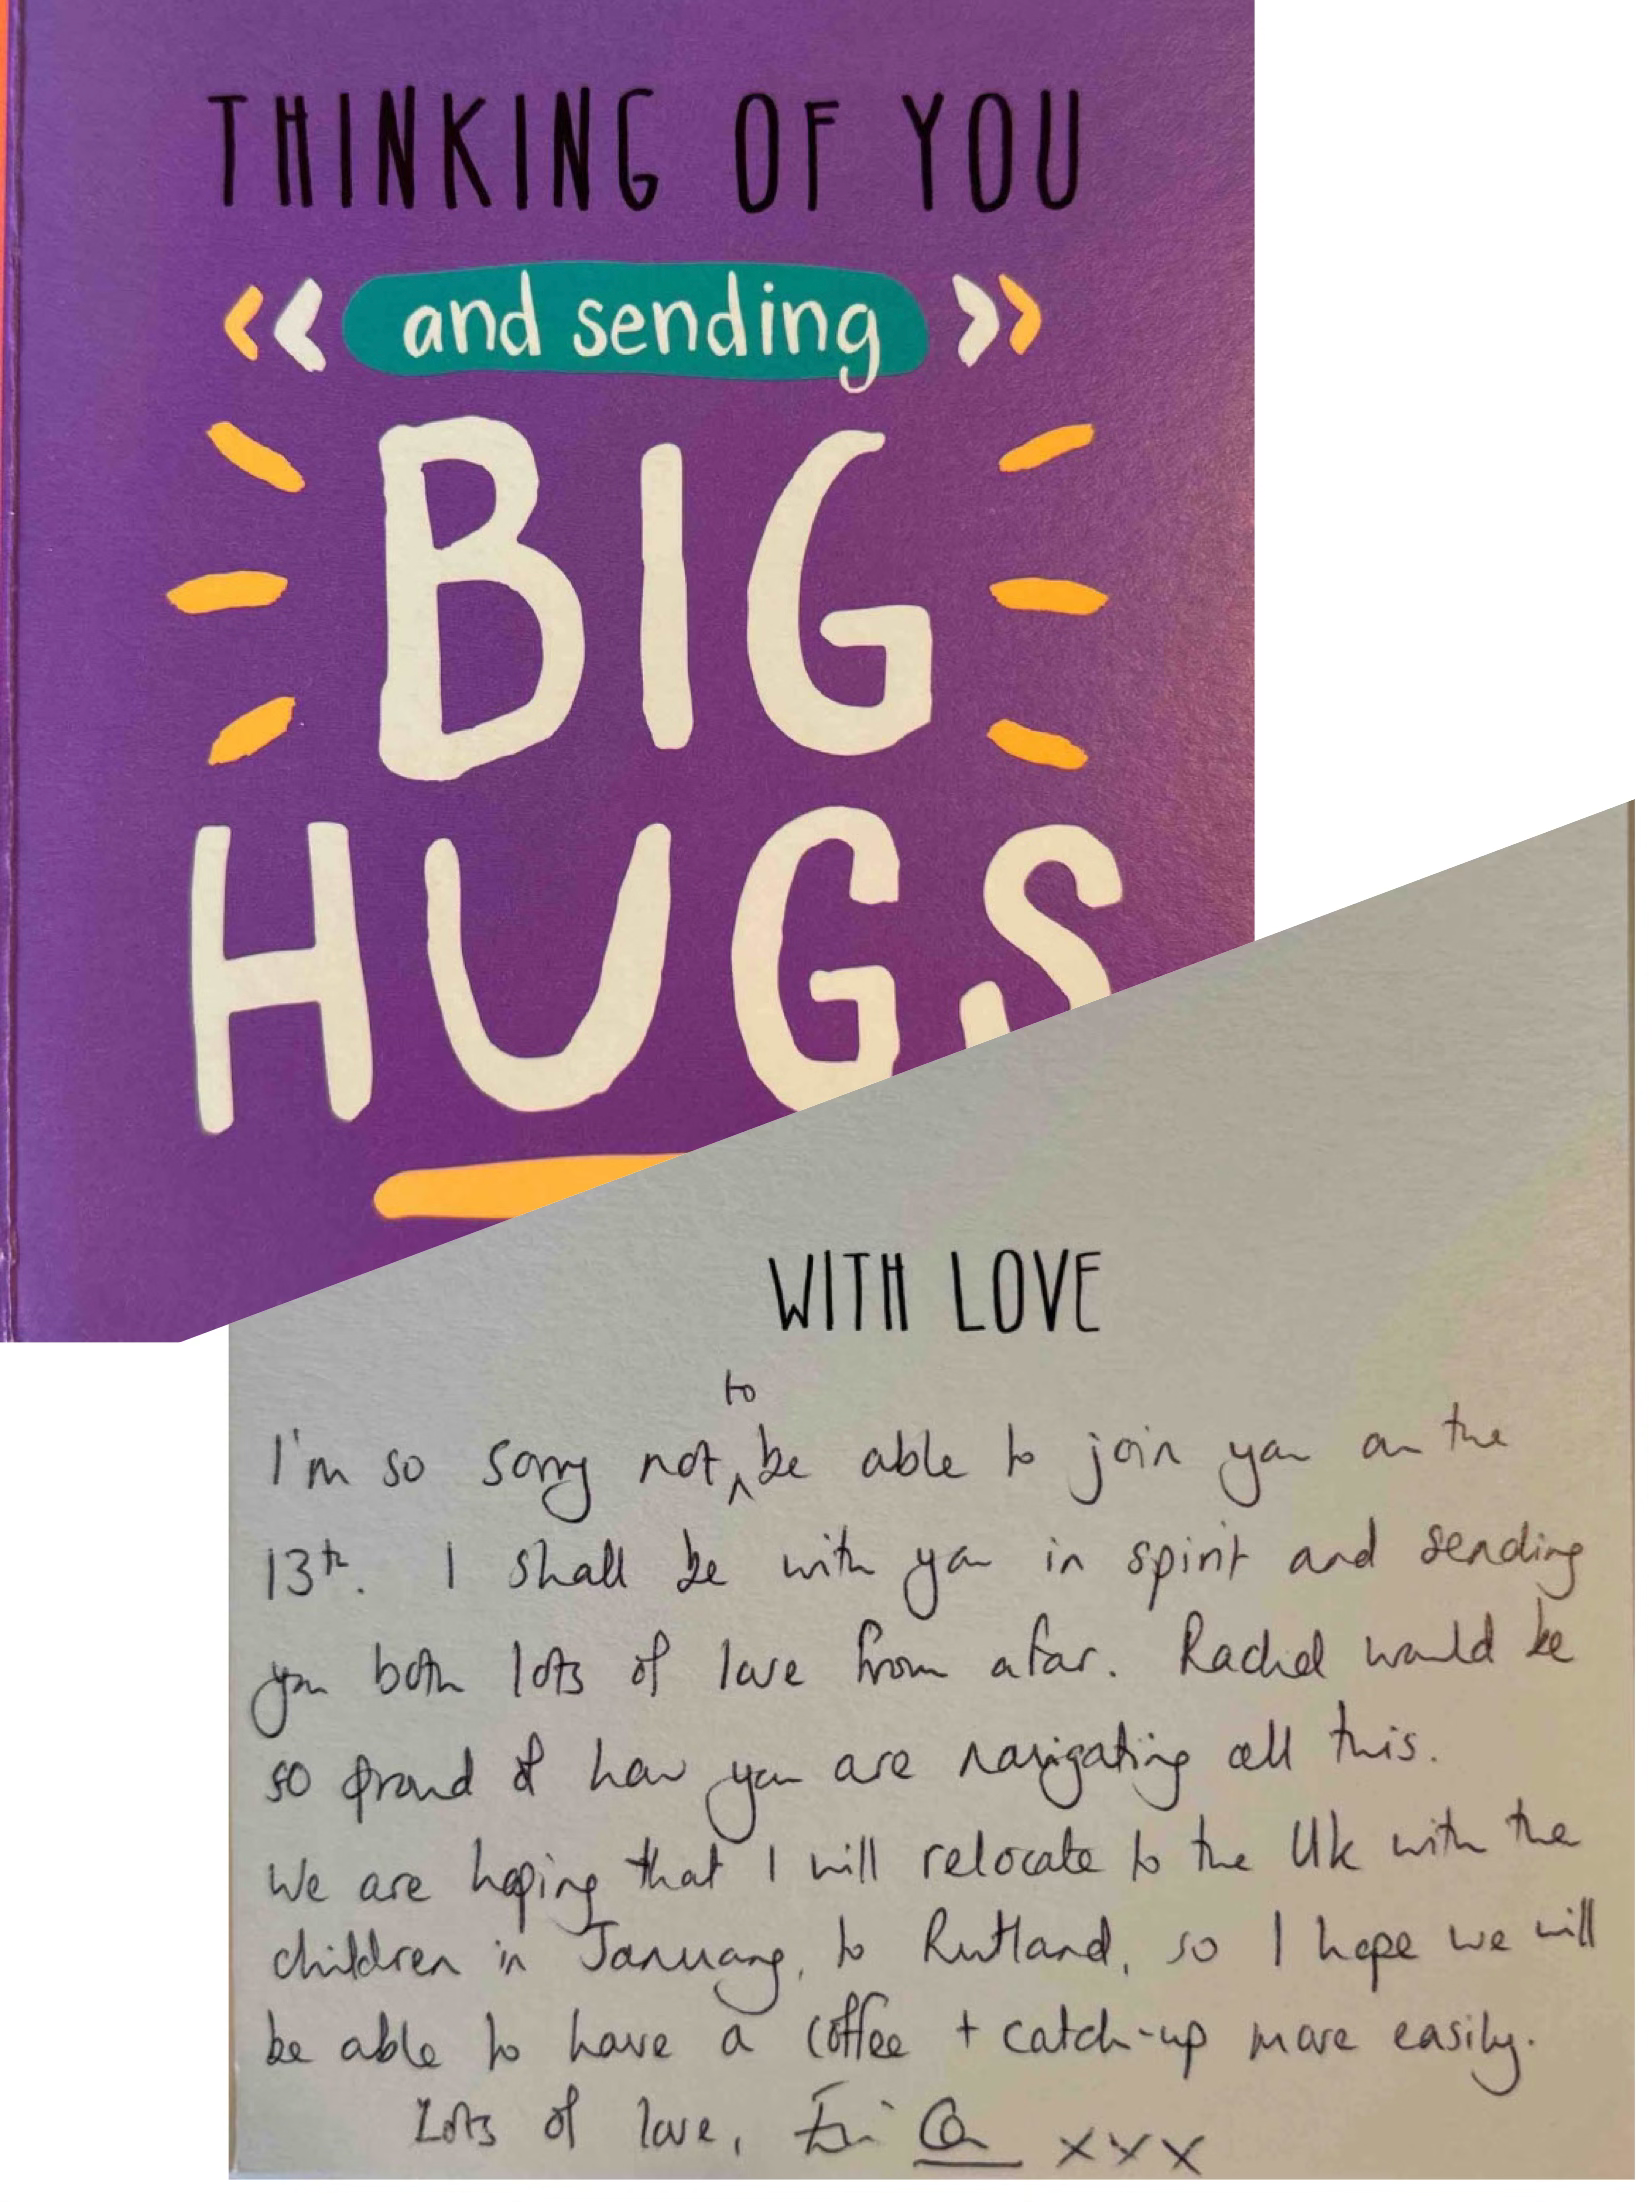 THINKING OF YOU
and sending
BIG
HUGS
WITH LOVE
I'm so sorry not to be able to join you on the
13th. I shall be with you in spirit and sending
you both lots of love from afar. Rachel would be
so proud of how you are navigating all this.
We are hoping that I will relocate to the UK with the
children in January, to Rutland, so I hope we will
be able to have a coffee + catch-up more easily.
Lots of love, xxx